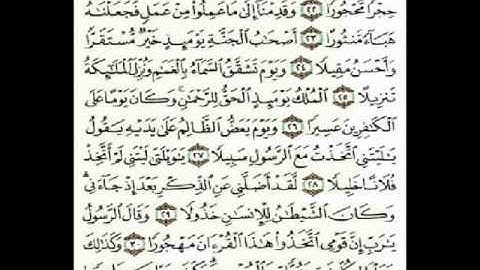 حِجْرًا مَّحْجُورًا ٢٢ وَقَدِمْنَا إِلَىٰ مَا عَمِلُوا۟ مِنْ عَمَلٍ فَجَعَلْنَٰهُ
هَبَآءً مَّنثُورًا ٢٣ أَصْحَٰبُ ٱلْجَنَّةِ يَوْمَئِذٍ خَيْرٌ مُّسْتَقَرًّا
وَأَحْسَنُ مَقِيلًا ٢٤ وَيَوْمَ تَشَقَّقُ ٱلسَّمَآءُ بِٱلْغَمَٰمِ وَنُزِّلَ ٱلْمَلَٰٓئِكَةُ
تَنزِيلًا ٢٥ ٱلْمُلْكُ يَوْمَئِذٍ ٱلْحَقُّ لِلرَّحْمَٰنِ ۚ وَكَانَ يَوْمًا عَلَى
ٱلْكَٰفِرِينَ عَسِيرًا ٢٦ وَيَوْمَ يَعَضُّ ٱلظَّالِمُ عَلَىٰ يَدَيْهِ يَقُولُ
يَٰلَيْتَنِى ٱتَّخَذْتُ مَعَ ٱلرَّسُولِ سَبِيلًا ٢٧ يَٰوَيْلَتَىٰ لَيْتَنِى لَمْ أَتَّخِذْ
فُلَانًا خَلِيلًا ٢٨ لَّقَدْ أَضَلَّنِى عَنِ ٱلذِّكْرِ بَعْدَ إِذْ جَآءَنِى ۗ
وَكَانَ ٱلشَّيْطَٰنُ لِلْإِنسَٰنِ خَذُولًا ٢٩ وَقَالَ ٱلرَّسُولُ
يَٰرَبِّ إِنَّ قَوْمِى ٱتَّخَذُوا۟ هَٰذَا ٱلْقُرْءَانَ مَهْجُورًا ٣٠ وَكَذَٰلِكَ